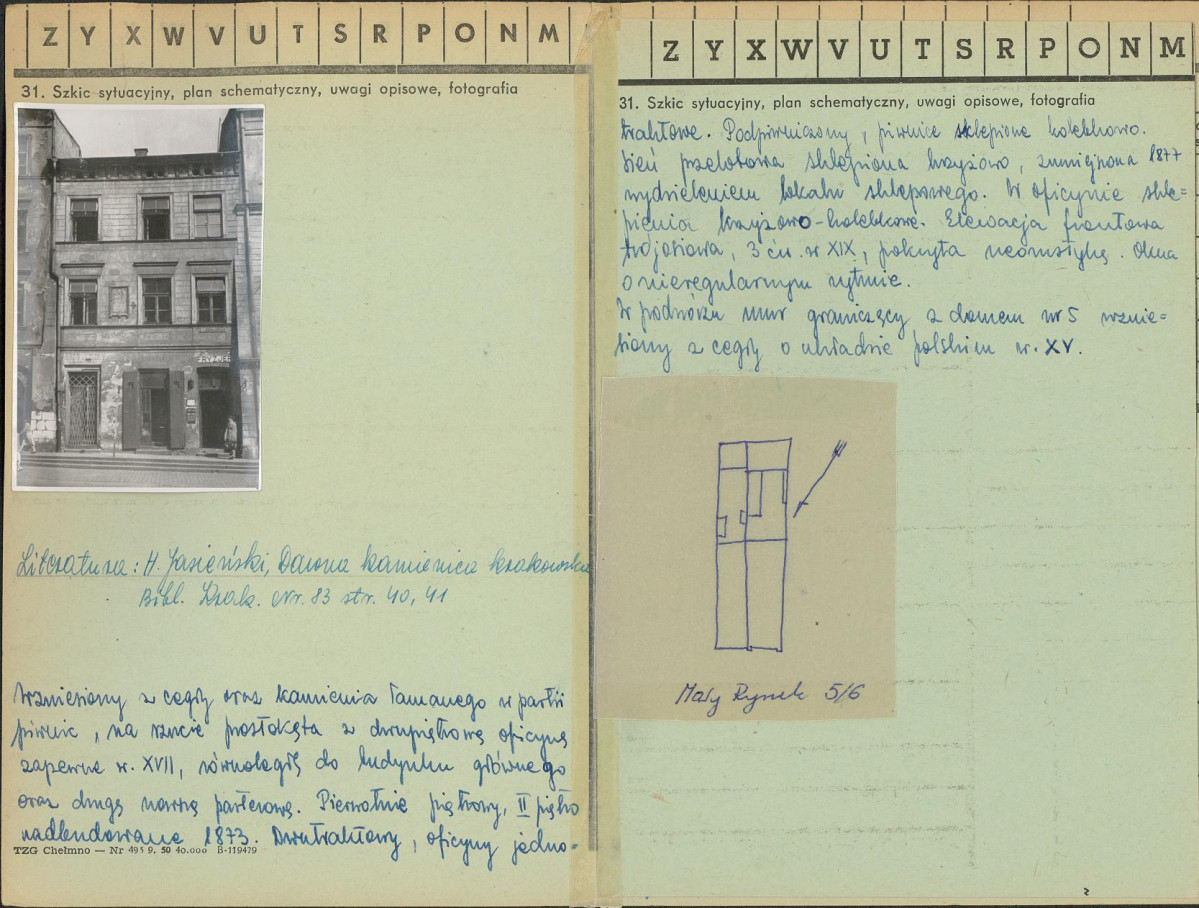 Z Y X W V U T S R P O N M
31. Szkic sytuacyjny, plan schematyczny, uwagi opisowe, fotografia
FRYZJER
Literatura: H. Jasieński, Dawna kamienica krakowska
Bibl. Krak. Nr. 83 str. 40, 41
Wzniesiony z cegły oraz kamienia łamanego w partii
piwnic, na rzucie prostokąta z dwupiętrową oficyną
zapewne w. XVII, równoległą do budynku głównego
oraz drugą nowszą parterową. Pierwotnie piętrowy, II piętro
nadbudowane 1873. Dwutraktowy, oficyny jedno-
TZG Chełmno — Nr 495 9. 50 40.000 B-119479
Z Y X W V U T S R P O N M
31. Szkic sytuacyjny, plan schematyczny, uwagi opisowe, fotografia
traktowe. Podpiwniczony, piwnice sklepione kolebkowo.
Sień przelotowa sklepiona krzyżowo, zmniejszona 1877
wydzieleniem lokalu sklepowego. W oficynie skle=
pienia krzyżowo-kolebkowe. Elewacja frontowa
trójosiowa, 3 ćw. w XIX, pokryta neorustyką. Okna
o nieregularnym rytmie.
W podwórzu mur graniczący z domem nr 5 wznie=
siony z cegły o układzie polskim w. XV.
Mały Rynek 5/6
2